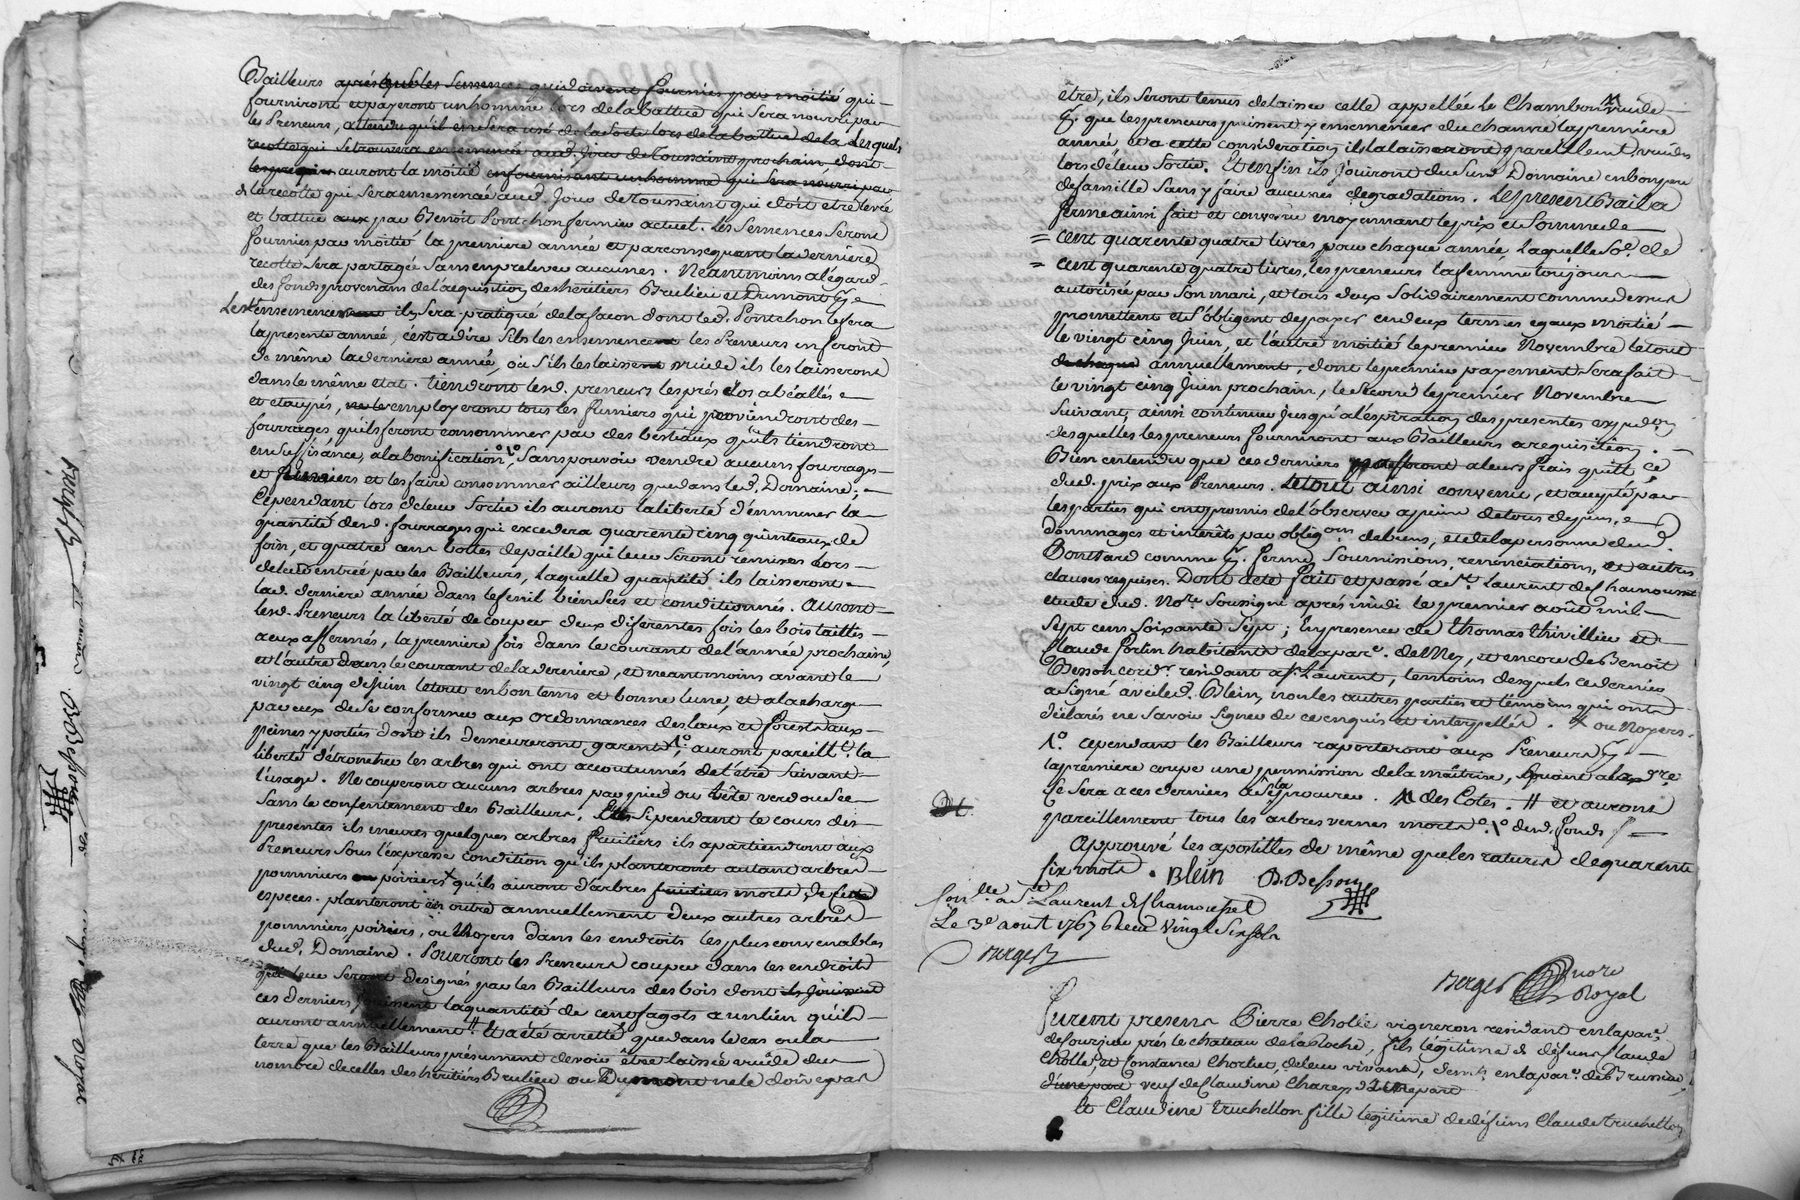 Bailleurs après que les semences qui doivent fournies par moitié qui
fourniront et payeront un homme lors de la battue qui sera nourri par
les Preneurs, attendu qu'il en sera usé de la sorte lors de la battue de la Lesquels
recolte qui se trouvera ensemencée aud. jour de Toussaint prochain dont
les preneurs auront la moitié en fournissant un homme qui sera nourri par
de la recolte qui sera ensemencée aud. Jour de Toussaint qui doit etre levée
et battue par Benoit Pontchon fermier actuel. Les Semences Seront
fournies par moitié la premiere année et par consequant la derniere
recolte sera partagée sans en prelever aucunes. Neantmoins a l'égard
des fonds provenans de l'acquisition des heritiers Brulieu et Dumont
Les ensemencer il en Sera pratiqué de la façon dont led. Pontchon le fera
la presente année, c'est a dire S'ils les ensemence les Preneurs en feront
de même la derniere année, où s'ils les laissent vuide ils les laisseront
dans le même etat. tiendront lesd. preneurs les prés clos abéallés
et etaupés, employeront tous les fumiers qui proviendront des
fourrages qu'ils feront consommer par des bestiaux qu'ils tiendront
en suffisance, a la bonification, Sans pouvoir vendre aucuns fourrages
et fumiers et les faire consommer ailleurs que dans led. Domaine;
Cependant lors de leur Sortie ils auront la liberté d'emmener la
quantité desd. fourrages qui excedera quarente cinq quinteaux de
foin, et quatre cens bottes de paille qui leur Seront remises lors
de leur entrée par les Bailleurs, Laquelle quantité ils laisseront
lad. derniere année dans le fenil bien sées et conditionnés. auront
lesd. Preneurs la liberté de couper deux diferentes fois les bois taillis
a eux affermés, la premiere fois dans le courant de l'année prochaine,
et l'autre dans le courant de la derniere, et neantmoins avant le
vingt cinq de juin le tout en bon tems et bonne lune, et a la charge
par eux de se conformer aux ordonnances des Eaux et forests aux
peines y portées dont ils demeureront garents 1.° auront pareillt. la
liberté d'étroncher les arbres qui ont accoutumés de l'être Suivant
l'usage. Ne couperont aucuns arbres par pied ou tête verd ou sec
Sans le consentement des Bailleurs. Si pendant le cours des
presentes ils meures quelques arbres fruitiers ils apartiendront aux
Preneurs Sous l'expresse condition qu'ils planteront autant arbres
pommiers poiriers + qu'ils auront d'arbres fruitiers morts de cette
especes. planteront en outre annuellement deux autres arbres
pommiers poiriers, ou Noyers dans les endroits les plus convenables
dud. Domaine. Pourront les Preneurs couper dans les endroits
qui leur Seront designés par les Bailleurs des bois dont ils jouissent
ces derniers jouissent la quantité de cent fagots au lieu qu'ils
auront annuellement # Et a été arretté que dans le cas ou la
terre que les Bailleurs présument devoir être laissée vuide du
nombre de celles des heritiers Brulieu ou Dumont ne le doive pas
être, ils seront tenus de laisser celle appellée Le Chambon vuide
p. que les preneurs puissent y ensemencer du chanvre la premiere
année et a cette consideration ils la laisseront pareillement vuides
lors de leur Sortie. Et enfin ils jouiront dusd. Domaine en bon pere
de famille Sans y faire aucunes degradations. Le present Bail a
ferme ainsi fait et convenu moyennant le prix et Somme de
= cent quarente quatre livres pour chaque année, Laquelle So.e de
= cent quarente quatre livres, les preneurs la femme toujours
autorisée par Son mari, et tous deux Solidairement comme dessus
promettent et S'obligent de payer en deux termes egaux moitié
le vingt cinq Juin, et l'autre moitié le premier Novembre le tout
de chaque annuellement, dont le premier payement sera fait
le vingt cinq Juin prochain, le Second le premier Novembre
Suivant, ainsi continuer jusqu'a l'expiration des presentes expedon
desquelles les preneurs fourniront aux Bailleurs a requisition.
Bien entendu que ces derniers passeront a leurs frais quitt.ce
dud. prix aux Preneurs. Le tout ainsi convenu, et accepté par
les parties qui ont promis de l'observer a peine de tous depens,
dommages et interêts par oblig.on de biens, et de la personne dud.
Bonttard comme p. fermes Soumissions, renonciations, et autres
clauses requises. Dont acte fait et passé a St. Laurent de Chamousset
etude dud. No.re Soussigné après midi le premier août mil
Sept cens soixante Sept; En presence de Thomas Thivillier et
Claude Portin habitants de la par.e de Mey, et encore de Benoit
Besson cord.r residant a St. Laurent, temoins desquels ce dernier
a signé avec led. Blein, non les autres parties et temoins qui ont
déclarés ne Savoir Signer de ce enquis et interpellés. + ou Noyers.
1.° cependant les Bailleurs raporteront aux Preneurs p.
la premiere coupe une permission de la maitrise, quant a la d.re
ce sera a ces derniers a se la procurer. des Cotes. # et auront
pareillement tous les arbres vernes morts desd. fonds
Approuvé les apostilles de même que les ratures de quarente
six mots. Blein B. Besson
Con.lle a St Laurent de Chamousset
Le 3e aout 1767 Reçu Vingt Six sols
Berger
Berger No.re
Royal
Furent presens Pierre Cholle vigneron residant en la par.e
de sourjeu près le chateau de la Roche, fils légitime de défunt Claude
Cholle, et Constance Chorliet, de leur vivant, dem.ts en la par.e de Brussieu,
d'une part veuf de Claudine Charez, d'une part
et Claudine Truchellon fille legitime de défunts Claude Truchellon